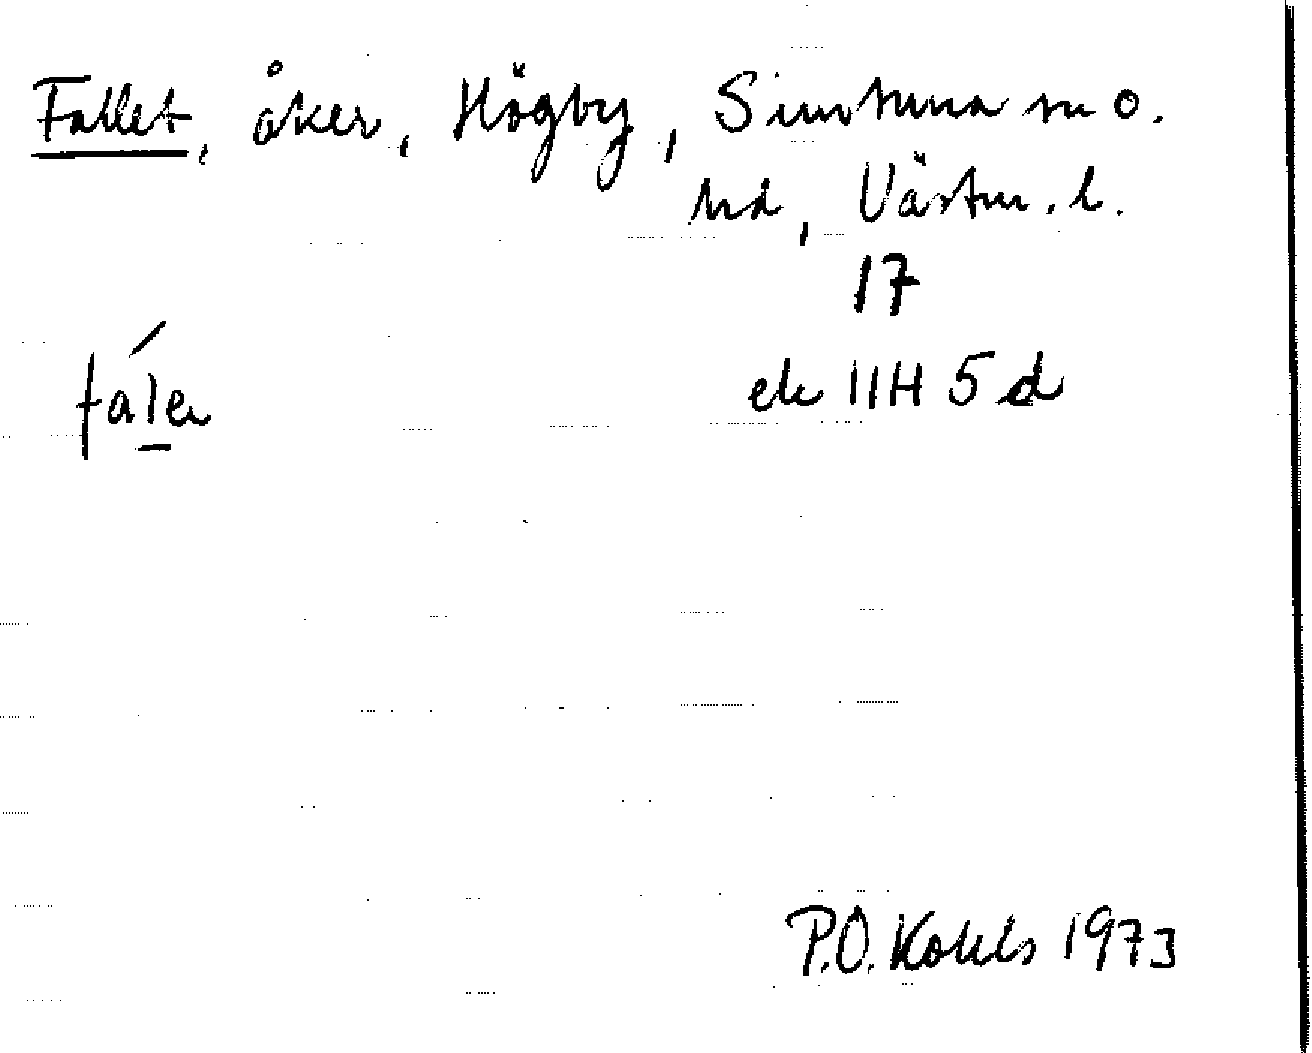 Fallet, åker, Högby, Simtuna sn o.
hd, Västm. l.
17
fáḻen
ek 11H 5d
P.O. Kohls 1973